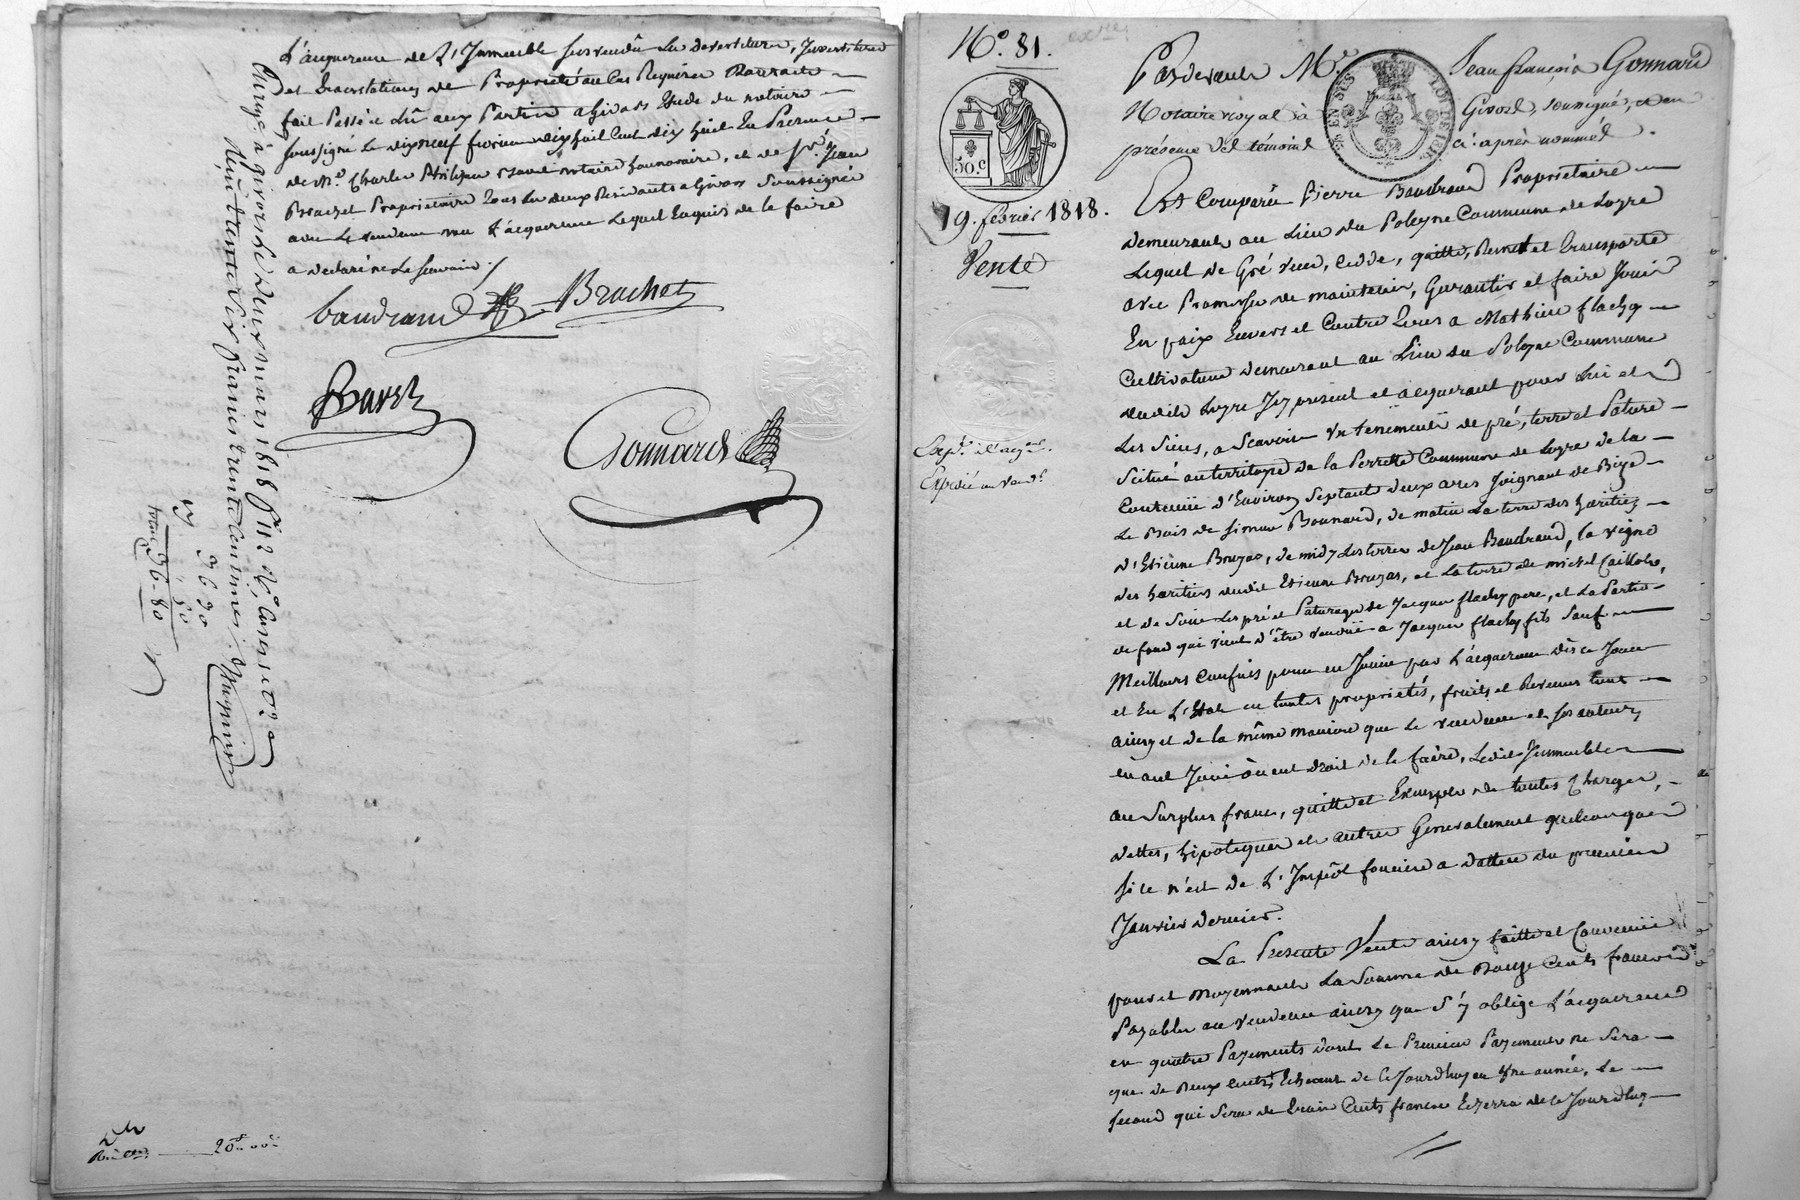 L'acquereur de l'Immeuble sus vendu
Des Translations de Propriété au Cas Requerir Dont acte
fait Passé et Lû aux Parties a Givors Etude du notaire
soussigné Le dixneuf fevrier dix huit Cent dix huit En Presence
de Me. Charles notaire honnoraire, et de Sr. Jean
Brachet Proprietaire tous Les deux Residants a Givors Soussignés
avec Le vendeur non L'acquereur Lequel Enquis de le faire
a declaré ne Le Scavoir
baudrand Brachet
Gonnard
Enregé. à givors le deux mars 1818
36 80
20
No. 81.
50.c
19. fevrier 1818.
Vente
Expé. a l'acqr.
Expédié au vendr.
Pardevant Me. Jean françois Gonnard
Notaire royal à Givors, soussigné, et en
présence des témoins ci-après nommés.
Est Comparu Pierre Baudrand Proprietaire
demeurant au Lieu du Pologne Commune de Loyre
Lequel de Gré vend, cedde, quitte, Remet et transporte
avec Promesse de maintenir, Garantir et faire Jouir
En paix Envers et Contre tous a Mathieu flachy
Cultivateur demeurant au Lieu du Pologne Commune
dudit Loyre Icy present et acquerant pour Lui et
Les Siens, a Scavoir un tenement de pré, terre et Pature
Scitué au territoire de la Perrette Commune de Loyre de la
Contenue d'Environ Septante deux ares Joignant de Bize
Le Bois de Simon Bonnard, de matin La terre des heritiers
d'Etienne Bruyas, de midy Les terres de Jean Baudrand, la vigne
des heritiers dudit Etienne Bruyas, et La terre de michel
et de Soir Les pré et Paturage de Jacques flachy pere, et La Partie
de fond qui vient d'être vendue a Jacques flachy fils Sauf
Meilleurs Confins pour en Jouir par L'acquereur dès ce Jour
et En L'Etat en toutes propriétés, fruits et Revenus tout
ainsy et de la même maniere que Le vendeur et ses auteurs
en ont Joui ou eut droit de le faire, Ledit Immeuble
au Surplus franc, quitte et Exempt de toutes Charges,
dettes, hipoteques et autres Generalement quelconques
Si ce n'est de L'Impôt foncier a datter du premier
Janvier dernier.
La Presente Vente ainsy faitte et Convenue
pour et moyennant La Somme de Douze Cents francs
Payable au vendeur ainsy que s'y oblige L'acquereur
en quatre Payements dont Le Premier Payement ne Sera
que de Deux cents, Echeant de ce Jourdhuy en une année, Le
Second qui Sera de trois Cents francs Echerra de ce Jourdhuy